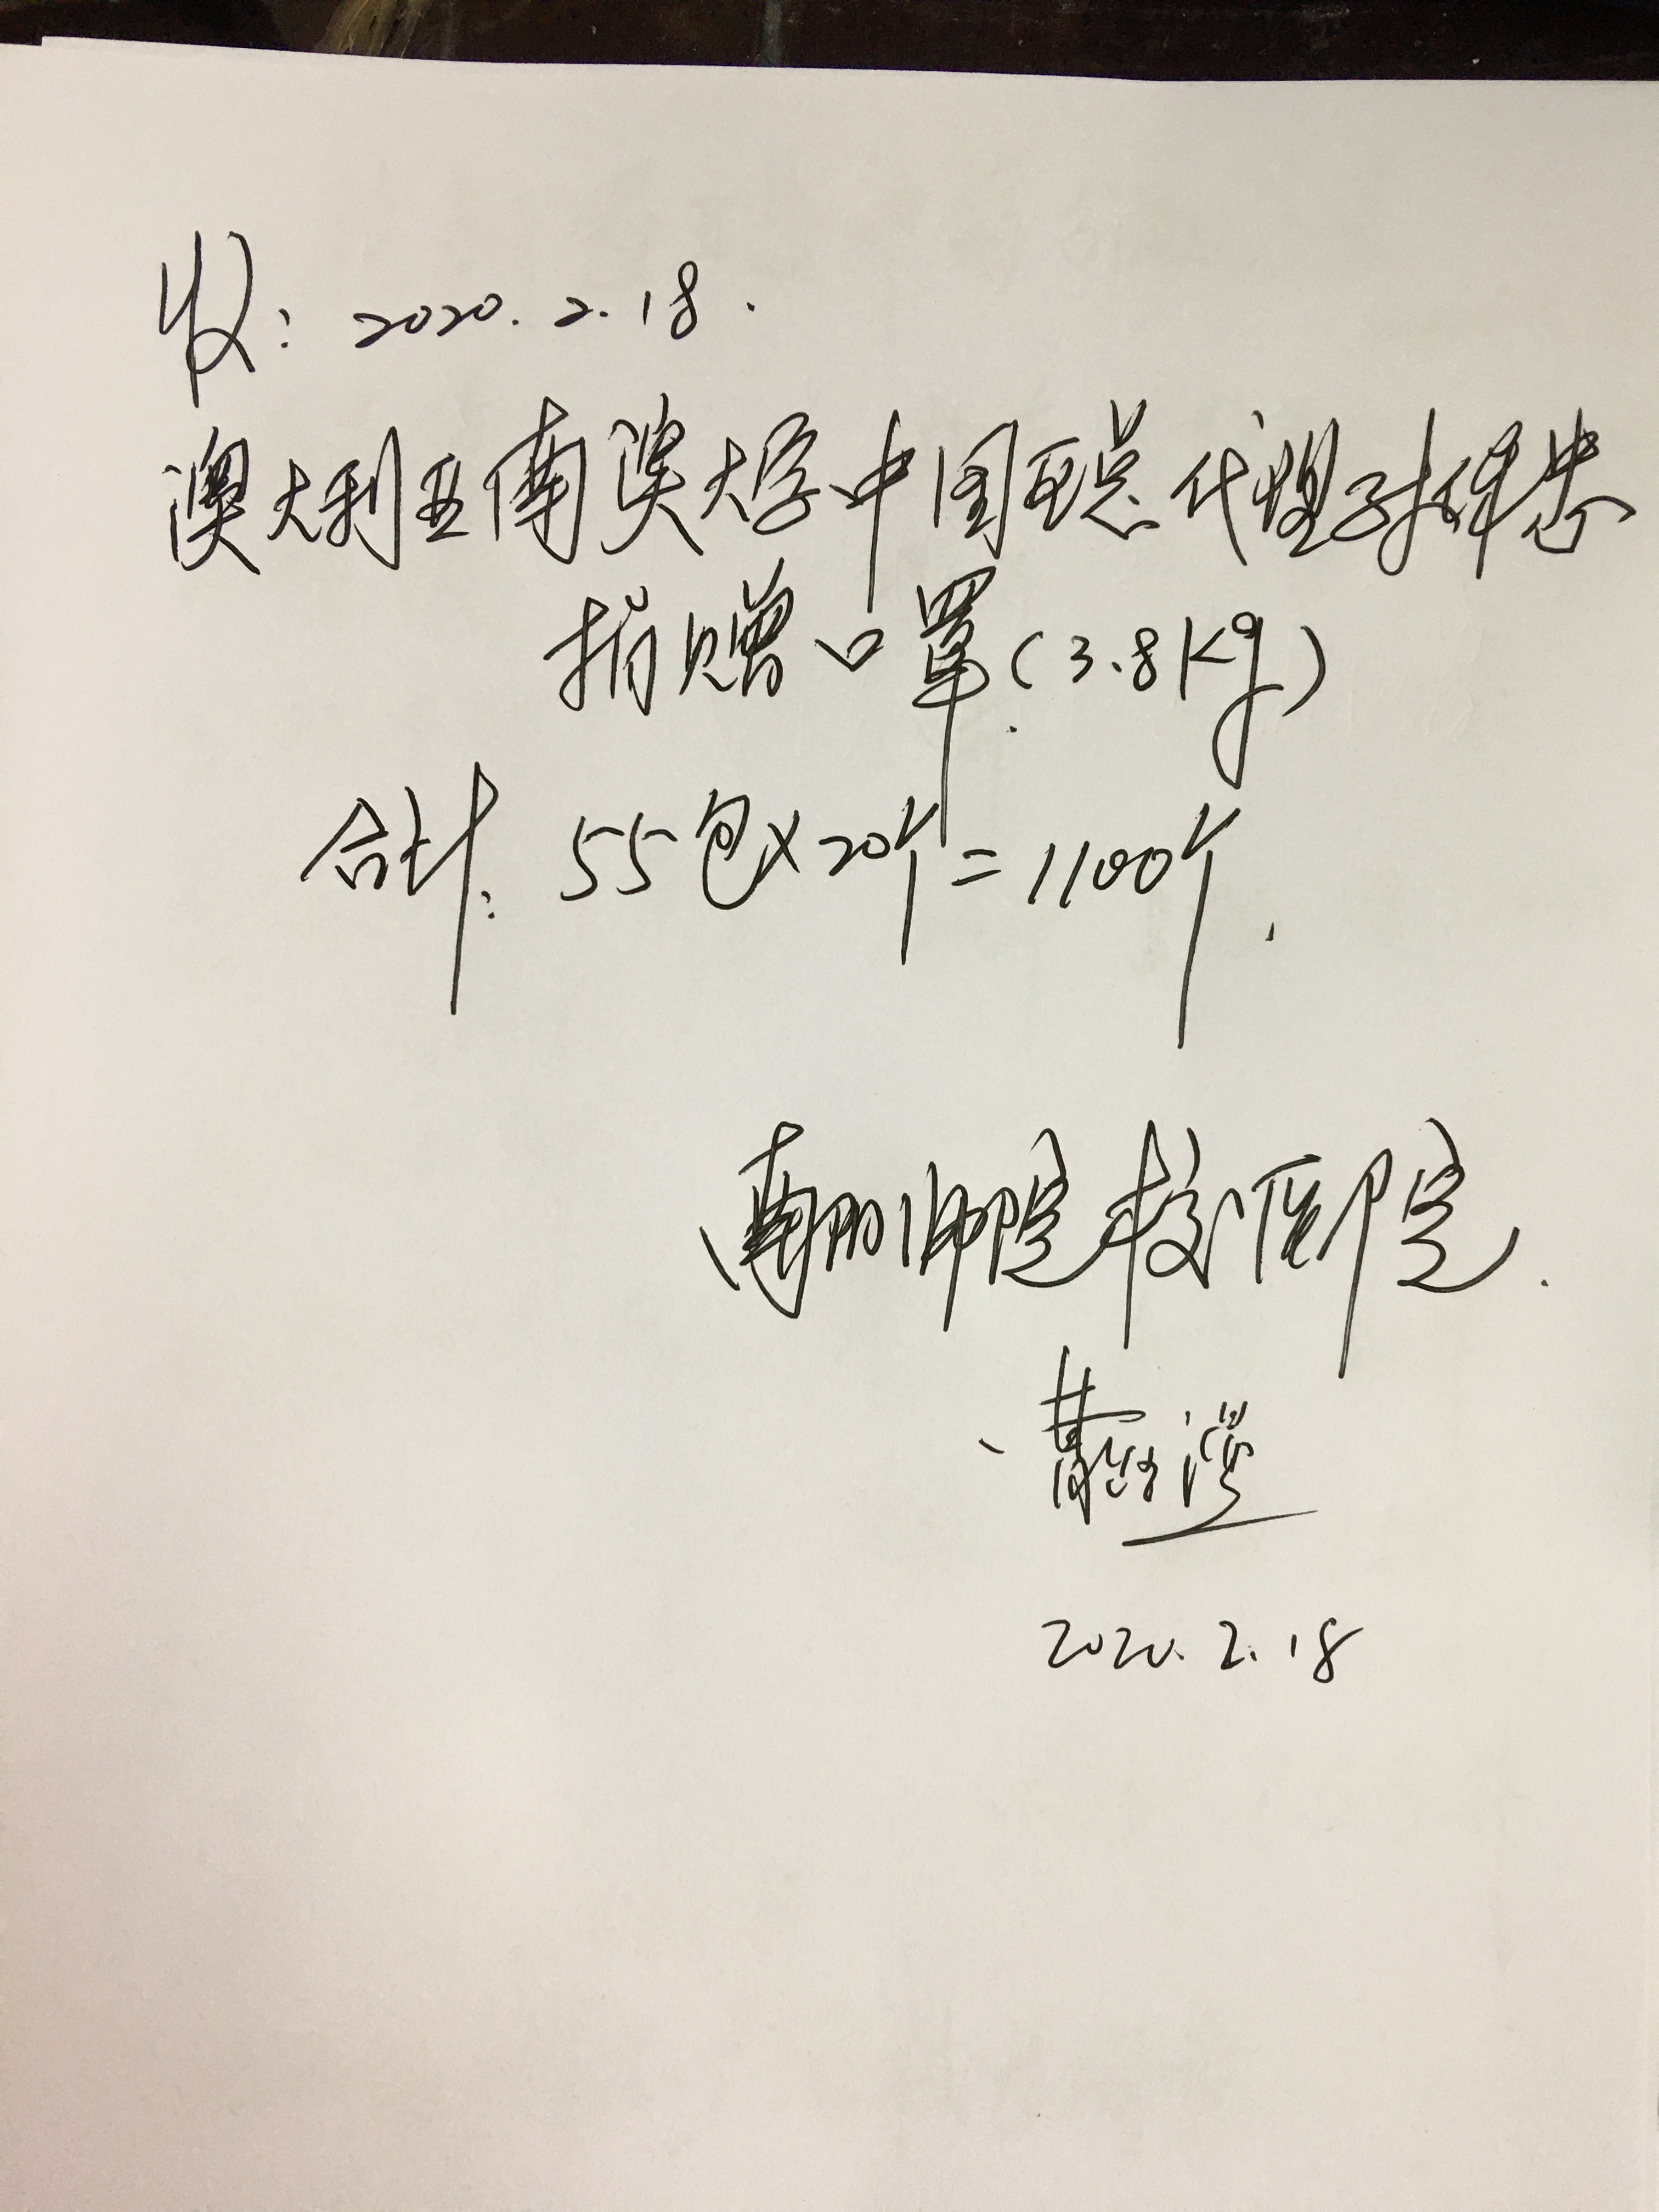 收：2020.2.18.
澳大利亚南澳大学中国区总代理孙
捐赠口罩(3.8Kg)
合计：55包×20个=1100个.
师院校医院.
2020.2.18